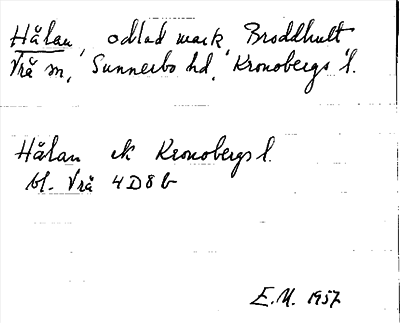 Hålan, odlad mark, Broddhult
Vrå sn, Sunnerbo hd, Kronobergs l.
Hålan ek Kronobergs l.
bl. Vrå 4D8b
E.U. 1957